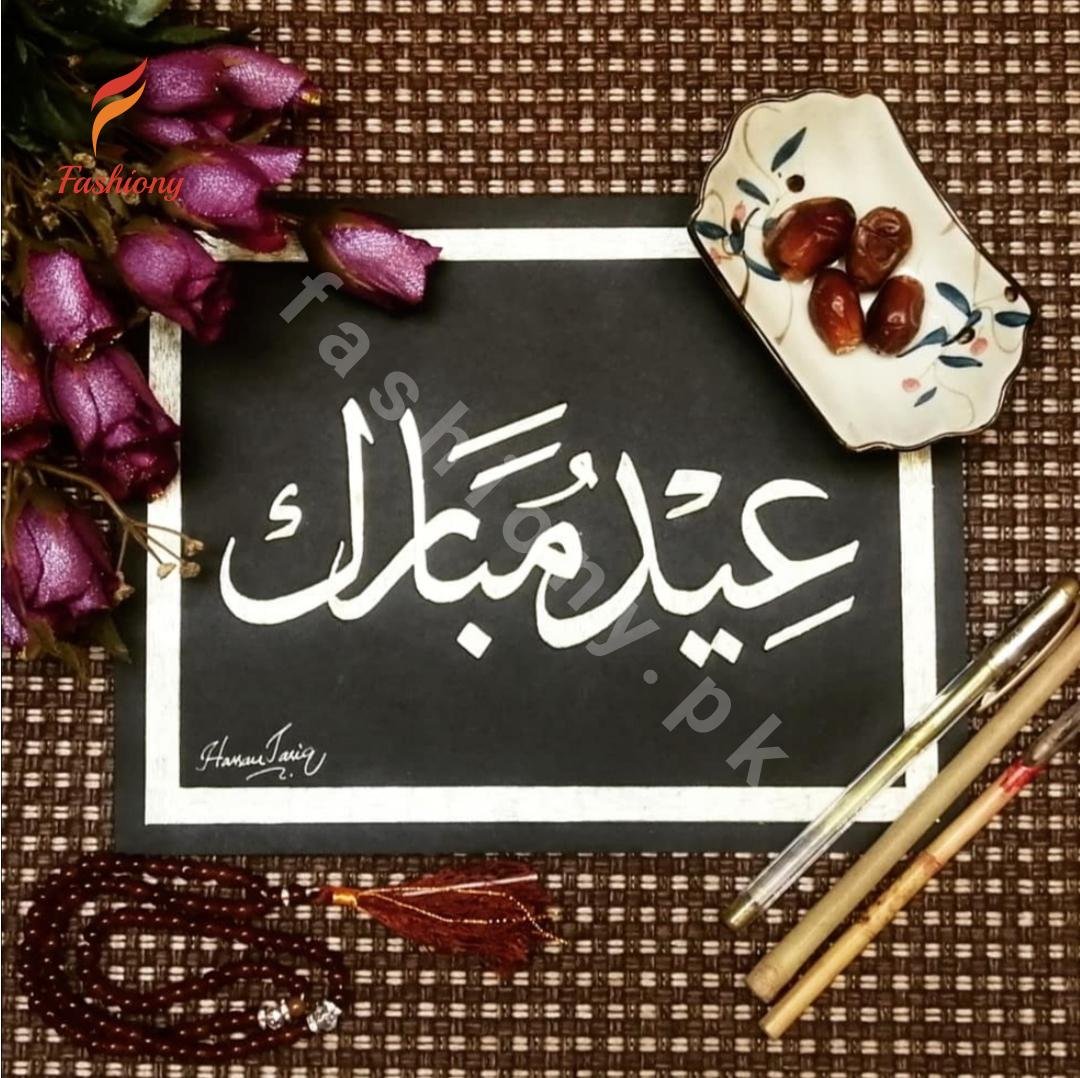 Fashiony
fashiony.pk
عِيْد مُبَارك
Hassan Tariq